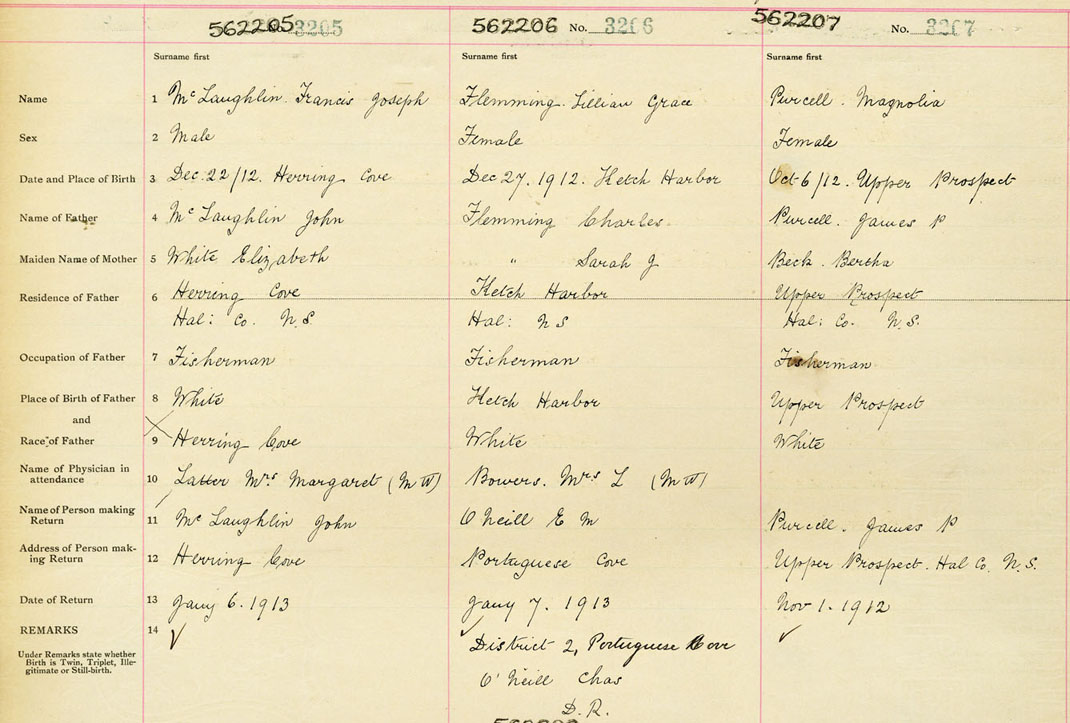 562205 No. 3205 562206 No. 3206 562207 No. 3207
Surname first Surname first Surname first
Name 1 McLaughlin. Francis Joseph Flemming. Lillian Grace Purcell. Magnolia
Sex 2 Male Female Female
Date and Place of Birth 3 Dec. 22/12. Herring Cove Dec 27. 1912. Ketch Harbor Oct 6/12. Upper Prospect
Name of Father 4 McLaughlin John Flemming Charles. Purcell. James P
Maiden Name of Mother 5 White Elizabeth " Sarah J Beck. Bertha
Residence of Father 6 Herring Cove Ketch Harbor Upper Prospect
Hal: Co. N.S. Hal: N S Hal: Co. N.S.
Occupation of Father 7 Fisherman Fisherman Fisherman
Place of Birth of Father 8 White Ketch Harbor Upper Prospect
and
Race of Father 9 Herring Cove White White
Name of Physician in
attendance 10 Latter Mrs Margaret (M W) Bowers. Mrs L (M W)
Name of Person making
Return 11 McLaughlin John O Neill E M Purcell. James P
Address of Person mak-
ing Return 12 Herring Cove Portuguese Cove Upper Prospect. Hal Co. N.S.
Date of Return 13 Jany 6. 1913 Jany 7. 1913 Nov 1. 1912
REMARKS 14 ✓ ✓ ✓
Under Remarks state whether
Birth is Twin, Triplet, Ille-
gitimate or Still-birth.
District 2, Portuguese Cove
O'Neill Chas
D.R.